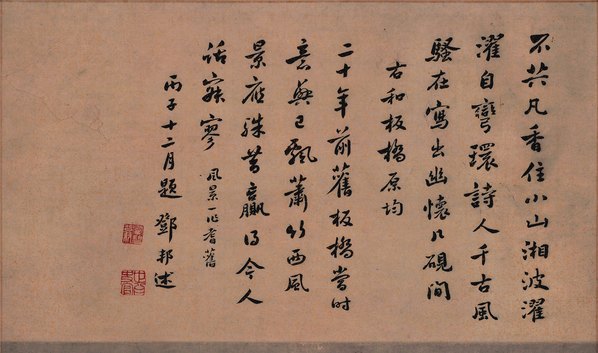 不共凡香住小山湘波濯
濯自彎環詩人千古風
騷在寫出幽懷几硯間
右和板橋原均
二十年前舊板橋當時
意興已飄蕭竹西風
景應殊昔贏得今人
話寂寥 風景一作耆舊
丙子十二月題 鄧邦述